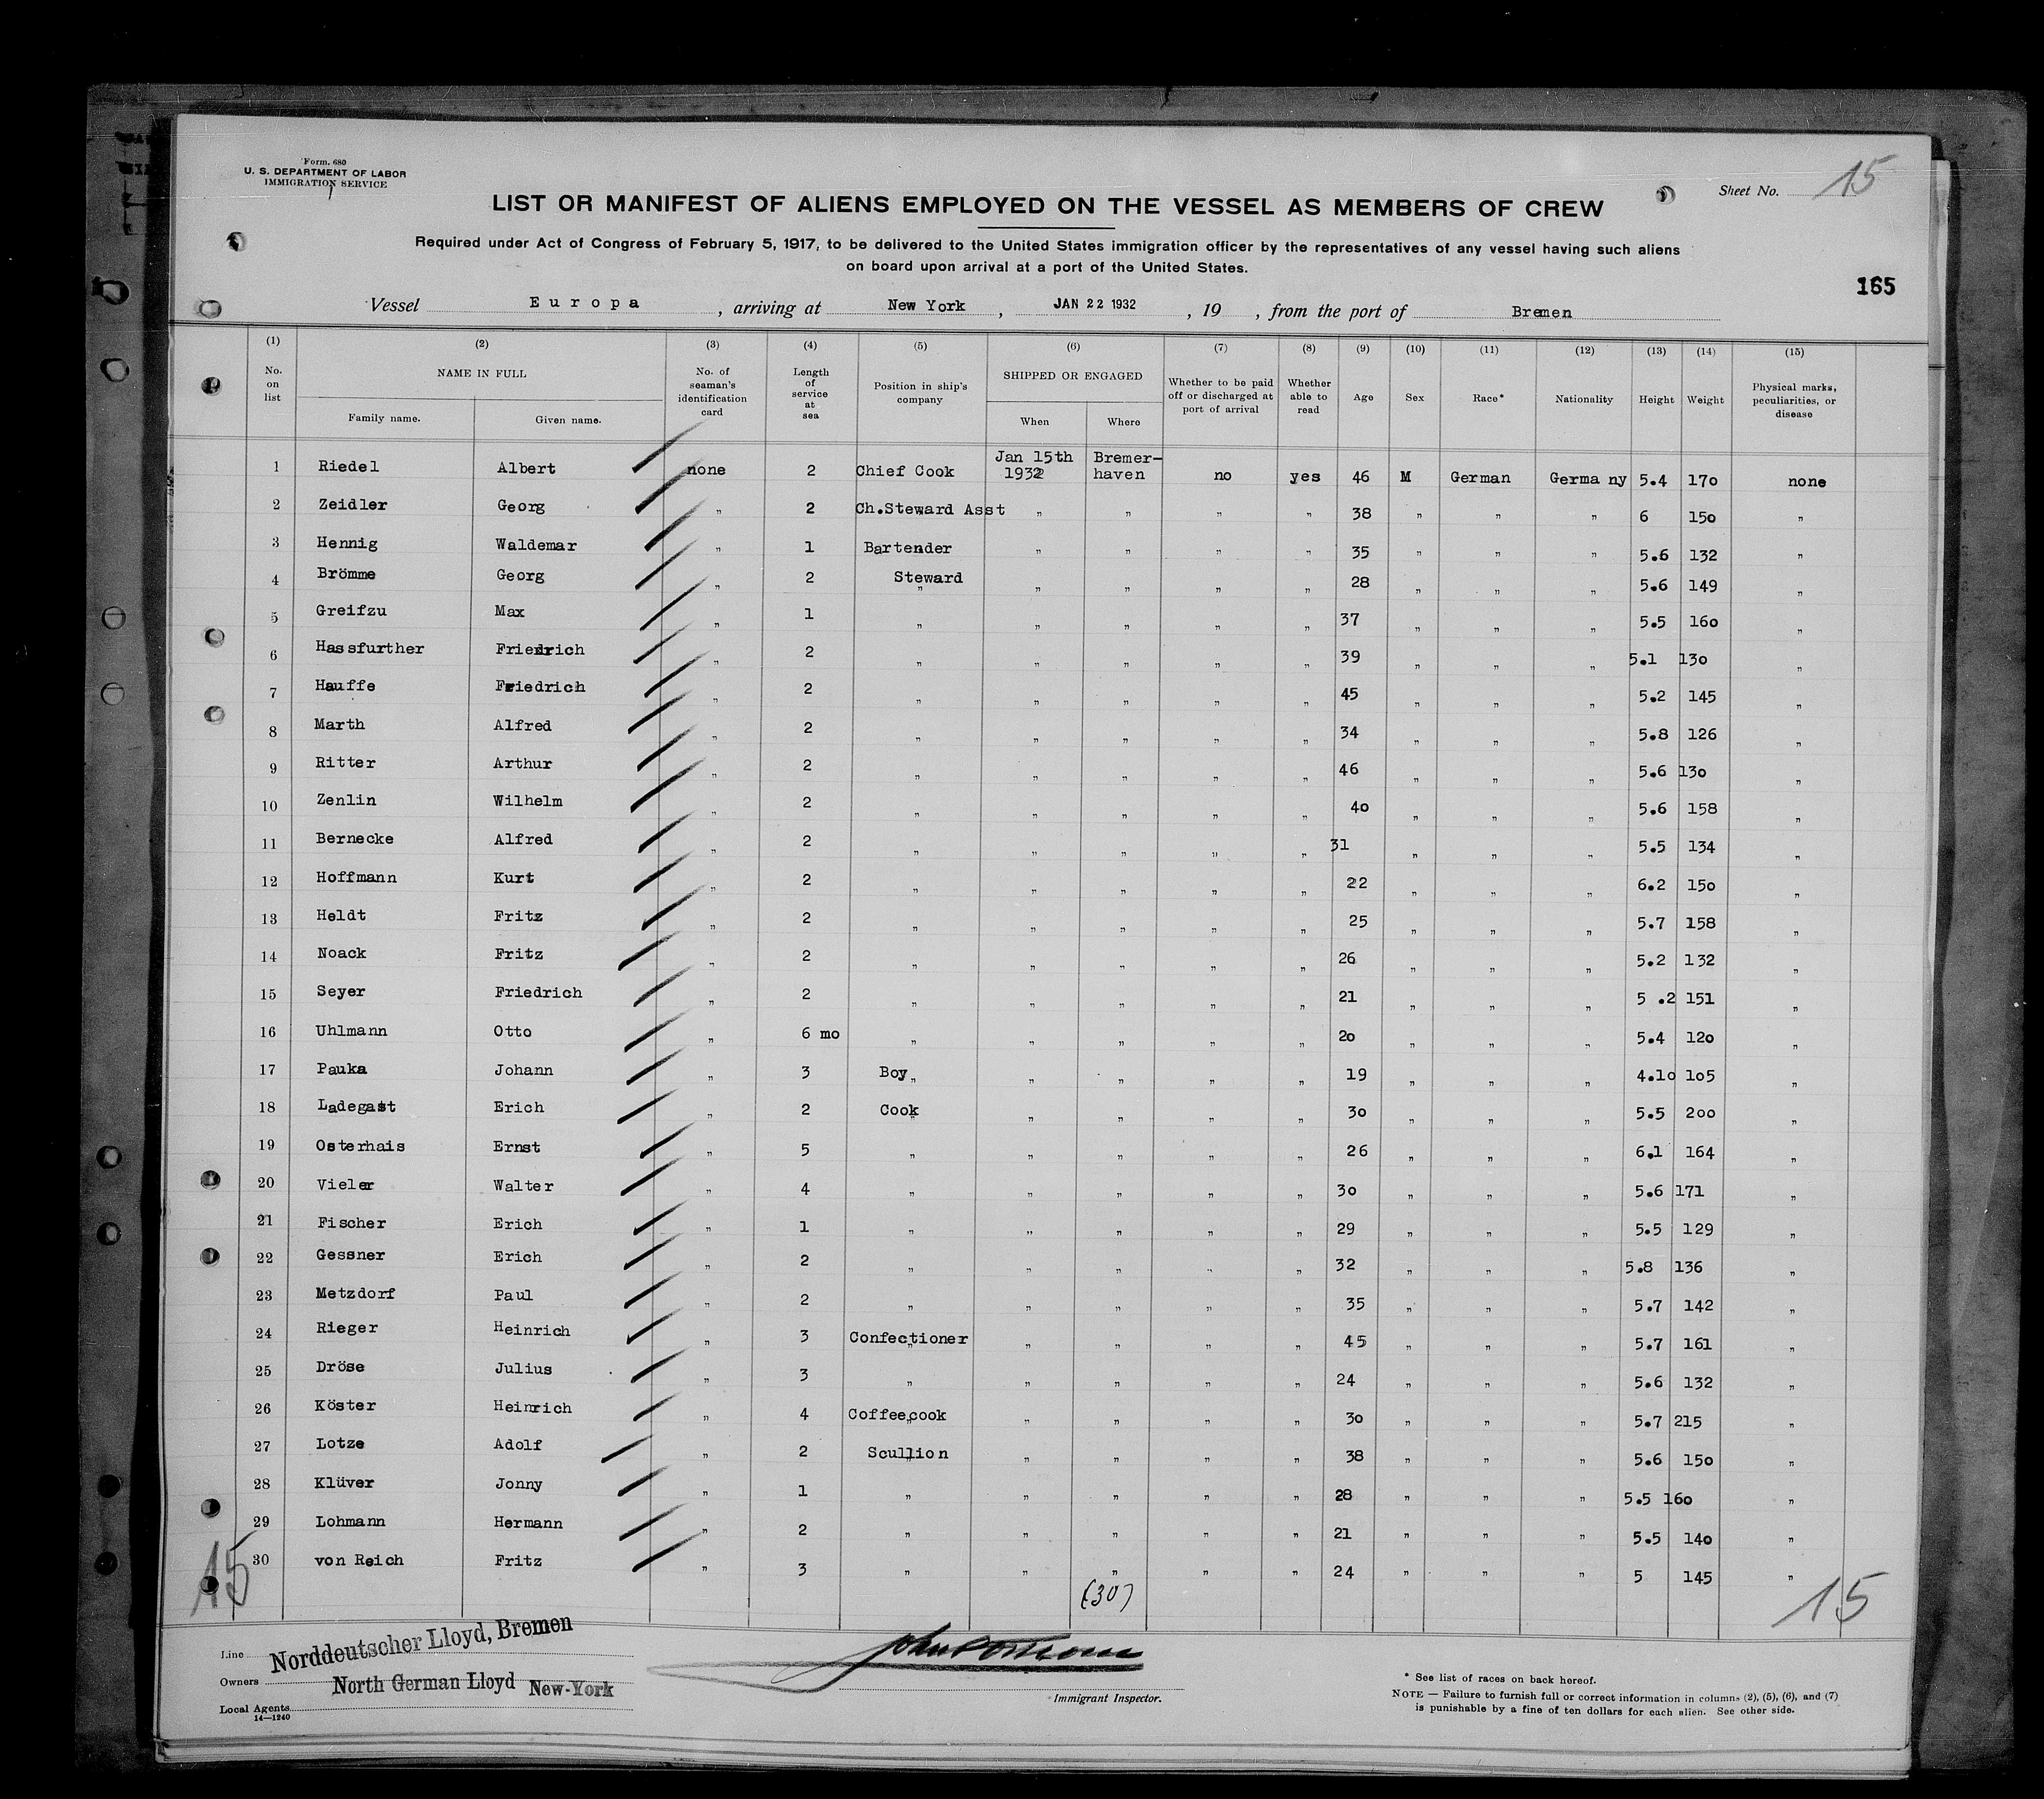 Form. 680
U. S. DEPARTMENT OF LABOR
IMMIGRATION SERVICE
Sheet No. 15
LIST OR MANIFEST OF ALIENS EMPLOYED ON THE VESSEL AS MEMBERS OF CREW
Required under Act of Congress of February 5, 1917, to be delivered to the United States immigration officer by the representatives of any vessel having such aliens
on board upon arrival at a port of the United States.
165
Vessel Europa , arriving at New York , JAN 22 1932 , 19 , from the port of Bremen
(1) (2) (3) (4) (5) (6) (7) (8) (9) (10) (11) (12) (13) (14) (15)
No. on list NAME IN FULL Family name. Given name. No. of seaman's identification card Length of service at sea Position in ship's company SHIPPED OR ENGAGED When Where Whether to be paid off or discharged at port of arrival Whether able to read Age Sex Race* Nationality Height Weight Physical marks, peculiarities, or disease
1 Riedel Albert none 2 Chief Cook Jan 15th 1932 Bremer-haven no yes 46 M German Germa ny 5.4 170 none
2 Zeidler Georg " 2 Ch.Steward Asst " " " " 38 " " " 6 150 "
3 Hennig Waldemar " 1 Bartender " " " " 35 " " " 5.6 132 "
4 Brömme Georg " 2 Steward " " " " " 28 " " " 5.6 149 "
5 Greifzu Max " 1 " " " " " 37 " " " 5.5 160 "
6 Hassfurther Friedrich " 2 " " " " " 39 " " " 5.1 130 "
7 Hauffe Friedrich " 2 " " " " " 45 " " " 5.2 145 "
8 Marth Alfred " 2 " " " " " 34 " " " 5.8 126 "
9 Ritter Arthur " 2 " " " " " 46 " " " 5.6 130 "
10 Zenlin Wilhelm " 2 " " " " " 40 " " " 5.6 158 "
11 Bernecke Alfred " 2 " " " " " 31 " " " 5.5 134 "
12 Hoffmann Kurt " 2 " " " " " 22 " " " 6.2 150 "
13 Heldt Fritz " 2 " " " " " 25 " " " 5.7 158 "
14 Noack Fritz " 2 " " " " " 26 " " " 5.2 132 "
15 Seyer Friedrich " 2 " " " " " 21 " " " 5 .2 151 "
16 Uhlmann Otto " 6 mo " " " " " 20 " " " 5.4 120 "
17 Pauka Johann " 3 Boy " " " " " 19 " " " 4.10 105 "
18 Ladegast Erich " 2 Cook " " " " " 30 " " " 5.5 200 "
19 Osterhais Ernst " 5 " " " " " 26 " " " 6.1 164 "
20 Vieler Walter " 4 " " " " " 30 " " " 5.6 171 "
21 Fischer Erich " 1 " " " " " 29 " " " 5.5 129 "
22 Gessner Erich " 2 " " " " " 32 " " " 5.8 136 "
23 Metzdorf Paul " 2 " " " " " 35 " " " 5.7 142 "
24 Rieger Heinrich " 3 Confectioner " " " " " 45 " " " 5.7 161 "
25 Dröse Julius " 3 " " " " " 24 " " " 5.6 132 "
26 Köster Heinrich " 4 Coffee cook " " " " " 30 " " " 5.7 215 "
27 Lotze Adolf " 2 Scullion " " " " " 38 " " " 5.6 150 "
28 Klüver Jonny " 1 " " " " " 28 " " " 5.5 160 "
29 Lohmann Hermann " 2 " " " " " 21 " " " 5.5 140 "
30 von Reich Fritz " 3 " " " " " 24 " " " 5 145 "
15 (30) 15
Line Norddeutscher Lloyd, Bremen
Owners North German Lloyd New-York
Local Agents
14—1240
Immigrant Inspector.
* See list of races on back hereof.
NOTE — Failure to furnish full or correct information in columns (2), (5), (6), and (7)
is punishable by a fine of ten dollars for each alien. See other side.